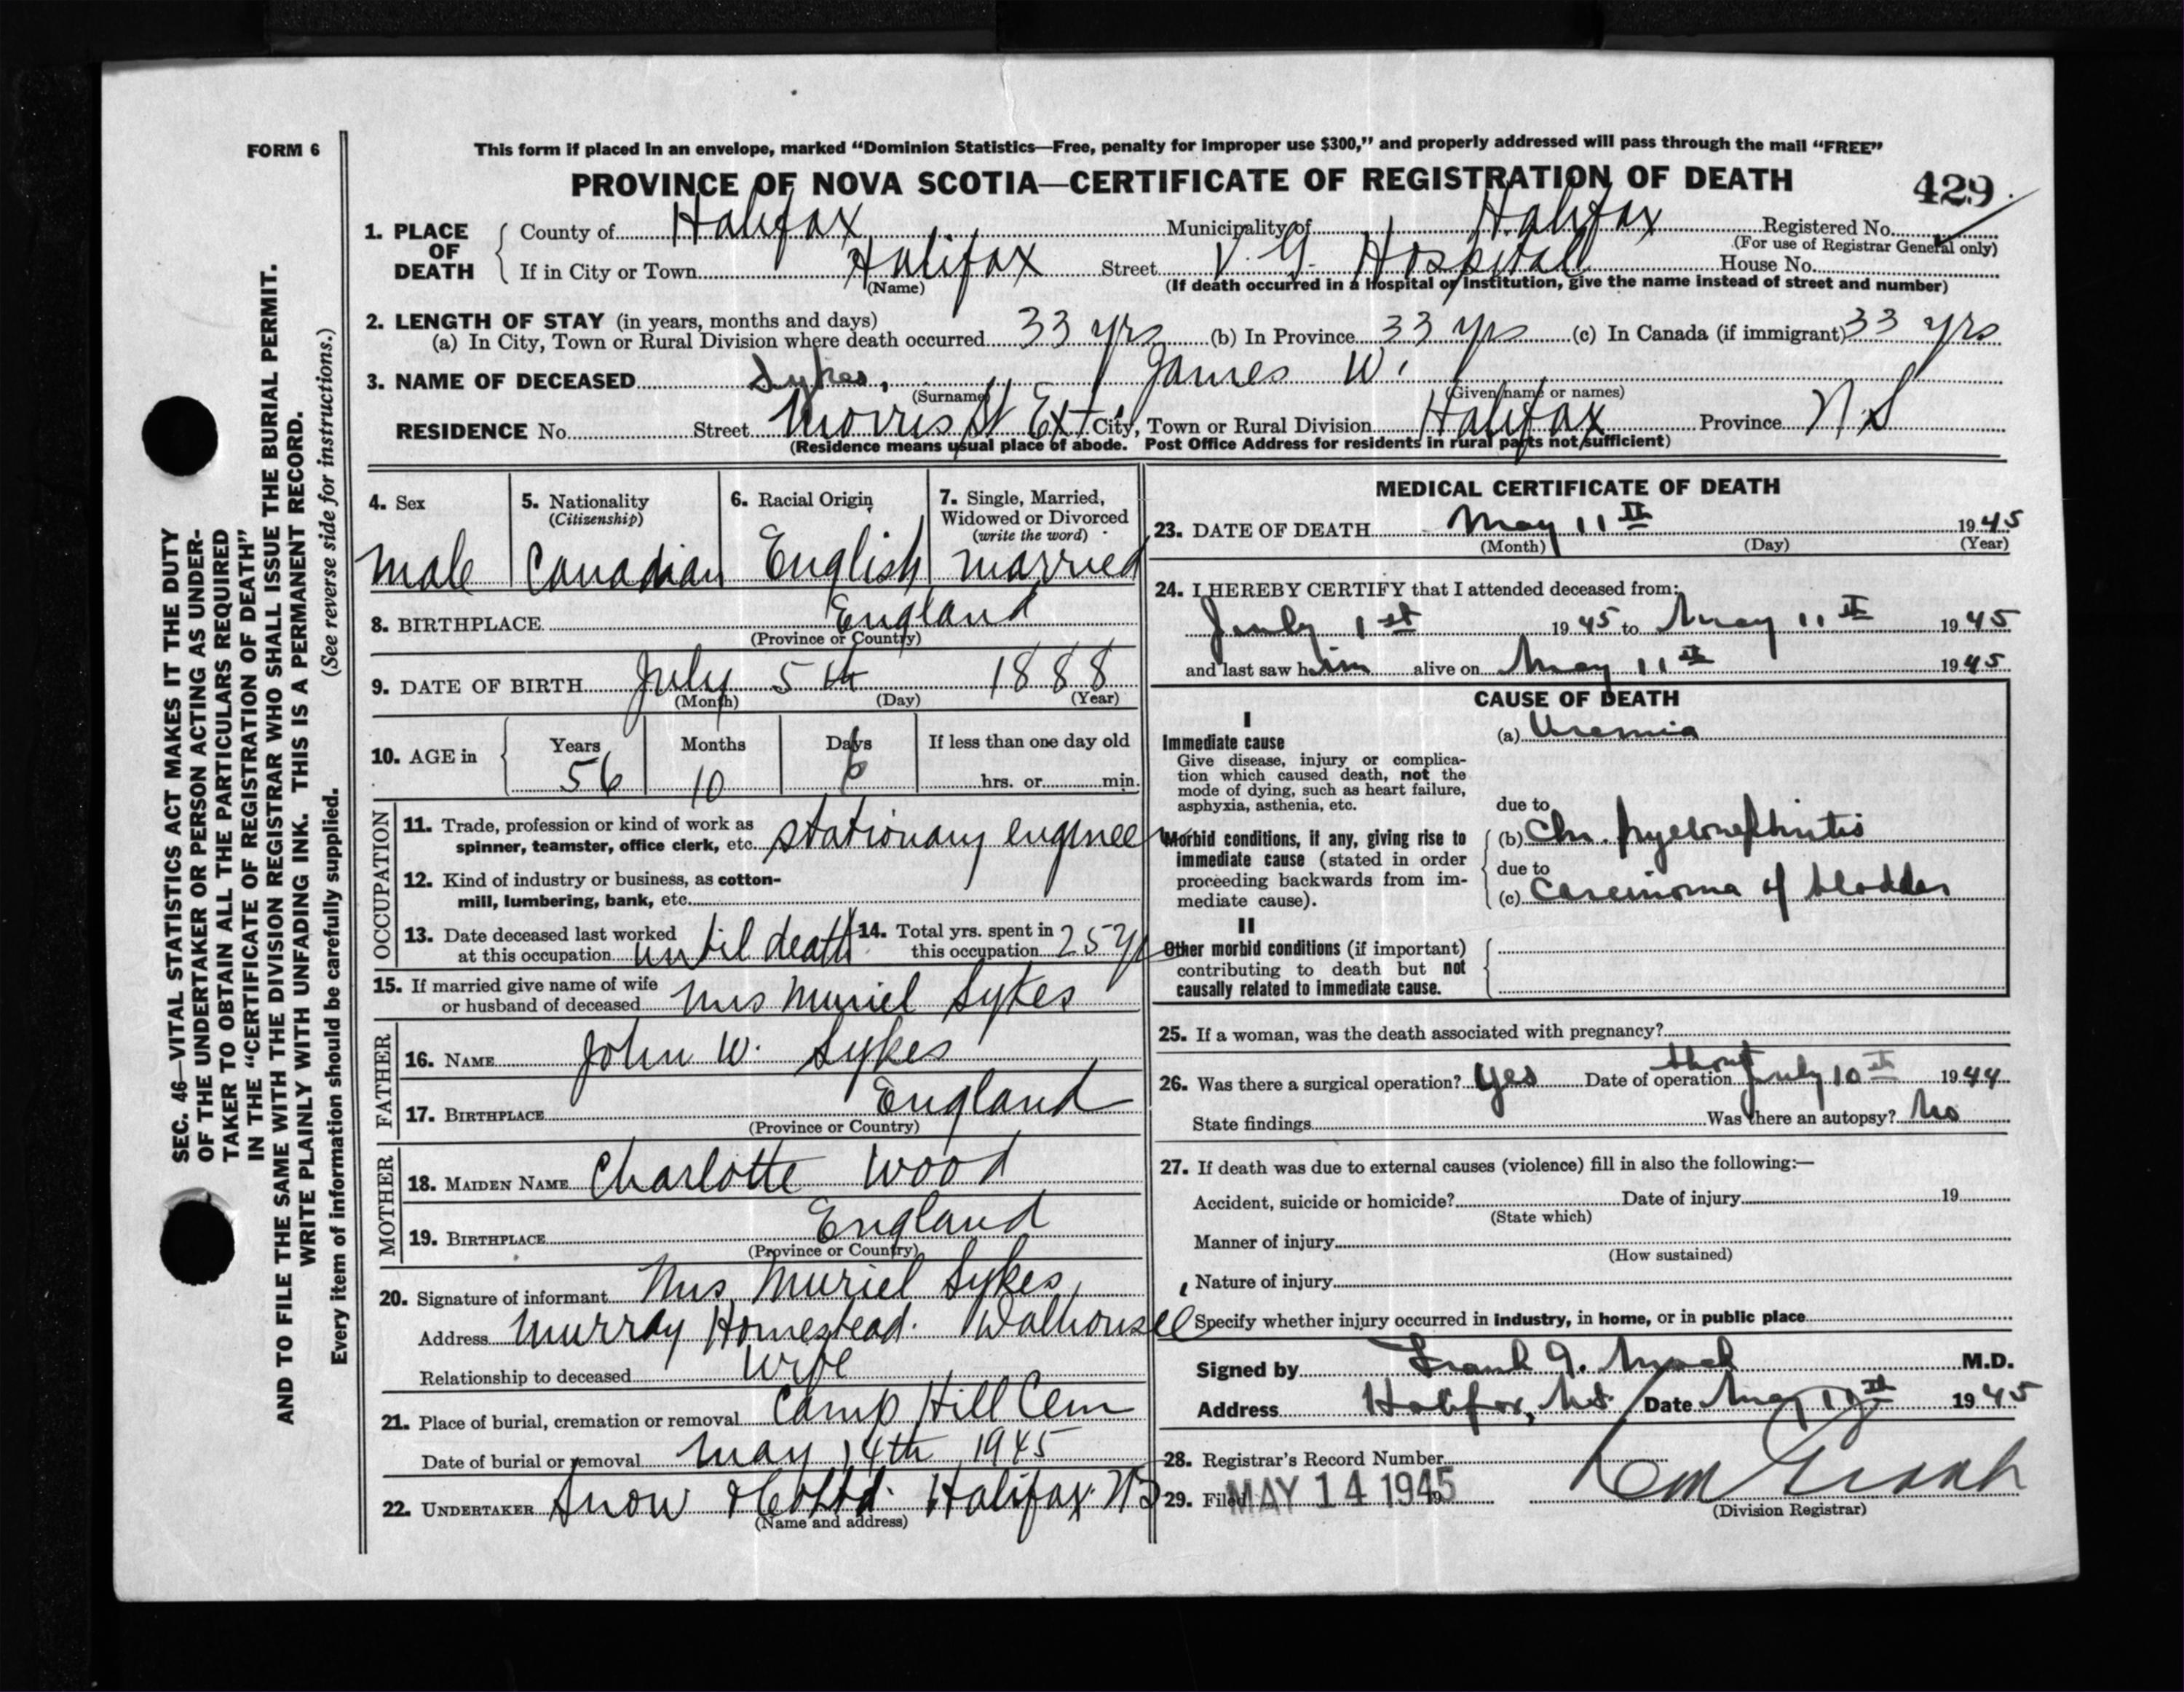 FORM 6
This form if placed in an envelope, marked "Dominion Statistics—Free, penalty for improper use $300," and properly addressed will pass through the mail "FREE"
PROVINCE OF NOVA SCOTIA—CERTIFICATE OF REGISTRATION OF DEATH
429
1. PLACE OF DEATH
County of Halifax Municipality of Halifax Registered No.
(For use of Registrar General only)
If in City or Town Halifax Street V. G. Hospital House No.
(Name) (If death occurred in a hospital or institution, give the name instead of street and number)
2. LENGTH OF STAY (in years, months and days)
(a) In City, Town or Rural Division where death occurred 33 yrs (b) In Province 33 yrs (c) In Canada (if immigrant) 33 yrs
3. NAME OF DECEASED Sykes, James W.
(Surname) (Given name or names)
RESIDENCE No. Street Morris St Ext City, Town or Rural Division Halifax Province N.S
(Residence means usual place of abode. Post Office Address for residents in rural parts not sufficient)
4. Sex
male
5. Nationality
(Citizenship)
Canadian
6. Racial Origin
English
7. Single, Married,
Widowed or Divorced
(write the word)
married
8. BIRTHPLACE England
(Province or Country)
9. DATE OF BIRTH July 5th 1888
(Month) (Day) (Year)
10. AGE in
Years Months Days If less than one day old
56 10 6 hrs. or min.
OCCUPATION
11. Trade, profession or kind of work as
spinner, teamster, office clerk, etc. stationary engineer
12. Kind of industry or business, as cotton-
mill, lumbering, bank, etc.
13. Date deceased last worked
at this occupation until death
14. Total yrs. spent in
this occupation 25 yr
15. If married give name of wife
or husband of deceased Mrs Muriel Sykes
FATHER
16. NAME John W. Sykes
17. BIRTHPLACE England
(Province or Country)
MOTHER
18. MAIDEN NAME Charlotte Wood
19. BIRTHPLACE England
(Province or Country)
20. Signature of informant Mrs Muriel Sykes
Address Murray Homestead. Dalhousie
Relationship to deceased wife
21. Place of burial, cremation or removal Camp Hill Cem
Date of burial or removal May 14th 1945
22. UNDERTAKER Snow & Co Ltd. Halifax NS
(Name and address)
MEDICAL CERTIFICATE OF DEATH
23. DATE OF DEATH May 11th 1945
(Month) (Day) (Year)
24. I HEREBY CERTIFY that I attended deceased from:
July 1st 1945 to May 11th 1945
and last saw him alive on May 11th 1945
CAUSE OF DEATH
I
Immediate cause
Give disease, injury or complica-
tion which caused death, not the
mode of dying, such as heart failure,
asphyxia, asthenia, etc.
(a) Uremia
due to
Morbid conditions, if any, giving rise to
immediate cause (stated in order
proceeding backwards from im-
mediate cause).
(b) Chr. pyelonephritis
due to
(c) Carcinoma of bladder
II
Other morbid conditions (if important)
contributing to death but not
causally related to immediate cause.
25. If a woman, was the death associated with pregnancy?
26. Was there a surgical operation? Yes Date of operation about July 10th 1944
State findings Was there an autopsy? No
27. If death was due to external causes (violence) fill in also the following:—
Accident, suicide or homicide? Date of injury 19
(State which)
Manner of injury
(How sustained)
Nature of injury
Specify whether injury occurred in industry, in home, or in public place
Signed by Frank G. Mack M.D.
Address Halifax, N.S. Date May 1945
28. Registrar's Record Number
29. Filed MAY 14 1945 19
(Division Registrar)
SEC. 46—VITAL STATISTICS ACT MAKES IT THE DUTY
OF THE UNDERTAKER OR PERSON ACTING AS UNDER-
TAKER TO OBTAIN ALL THE PARTICULARS REQUIRED
IN THE "CERTIFICATE OF REGISTRATION OF DEATH"
AND TO FILE THE SAME WITH THE DIVISION REGISTRAR WHO SHALL ISSUE THE BURIAL PERMIT.
WRITE PLAINLY WITH UNFADING INK. THIS IS A PERMANENT RECORD.
Every item of information should be carefully supplied. (See reverse side for instructions.)